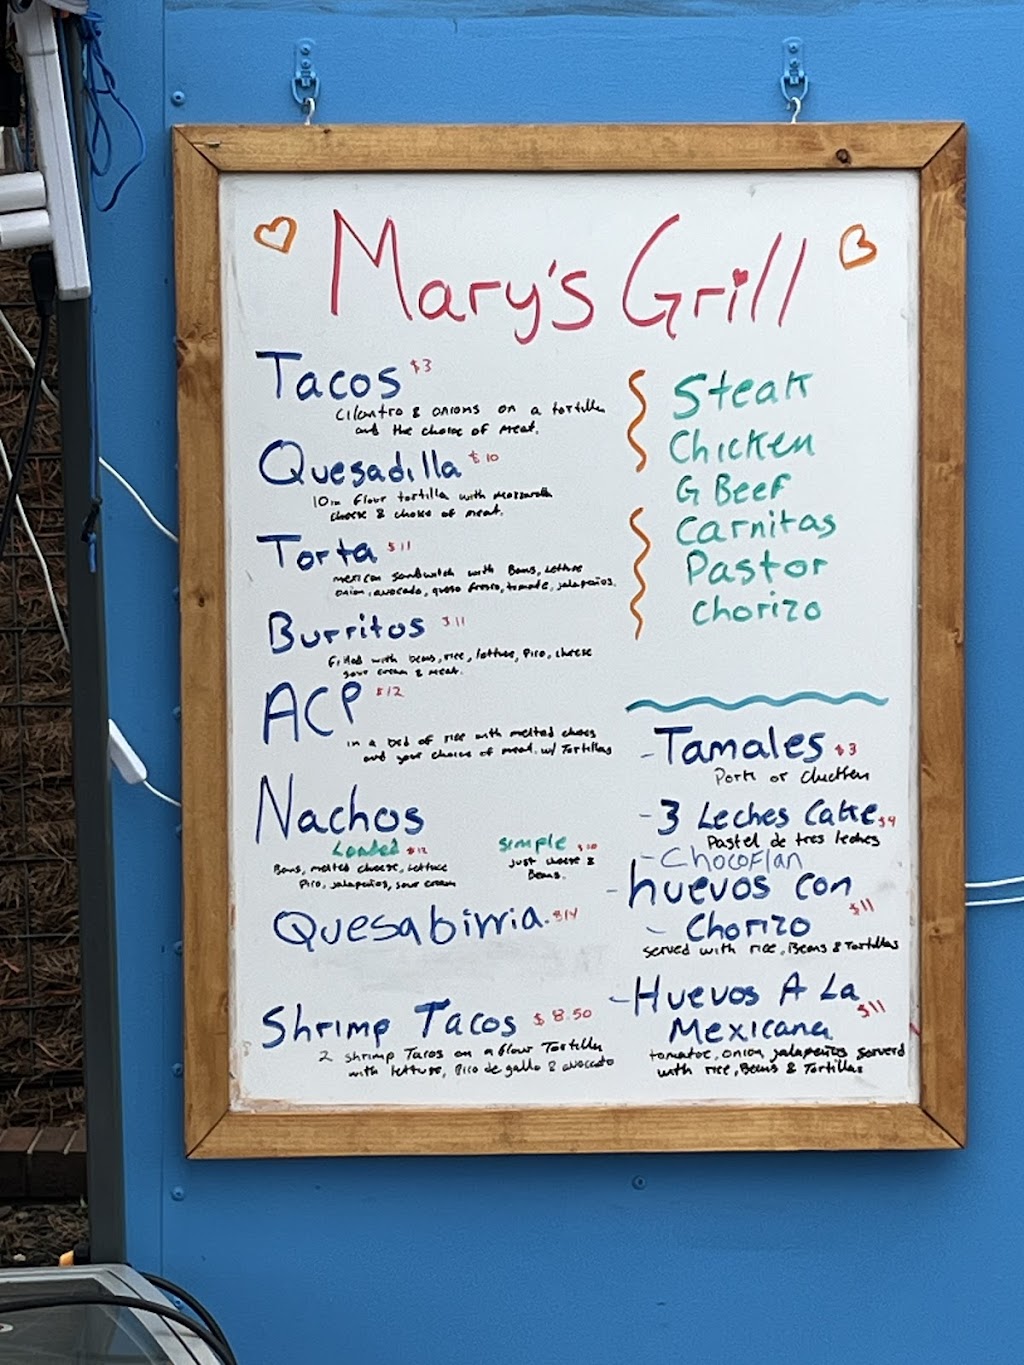 Mary's Grill
Tacos $3
cilantro & onions on a tortilla
and the choice of meat.
Quesadilla $10
10in flour tortilla with mozzarella
cheese & choise of meat.
Torta $11
mexican sandwitch with Beans, lettuce
onion, avocado, queso fresco, tomate, jalapeños.
Burritos $11
filled with beans, rice, lettuce, pico, cheese
sour cream & meat.
ACP $12
in a bed of rice with melted chees
and your choice of meat. w/ Tortillas
Nachos
Loaded $12
Beans, melted cheese, lettuce
Pico, jalapeños, sour cream
simple $10
just cheese &
Beans.
Quesabirria. $14
Shrimp Tacos $8.50
2 shrimp Tacos on a flour Tortilla
with lettuce, Pico de gallo & avocado
Steak
Chicken
G Beef
Carnitas
Pastor
Chorizo
- Tamales $3
Pork or Chicken
- 3 Leches Cake
Pastel de tres leches
- Chocoflan
- huevos con
- Chorizo $11
served with rice, Beans & Tortillas
- Huevos A La
Mexicana $11
tomatoe, onion, jalapeños serverd
with rice, Beans & Tortillas